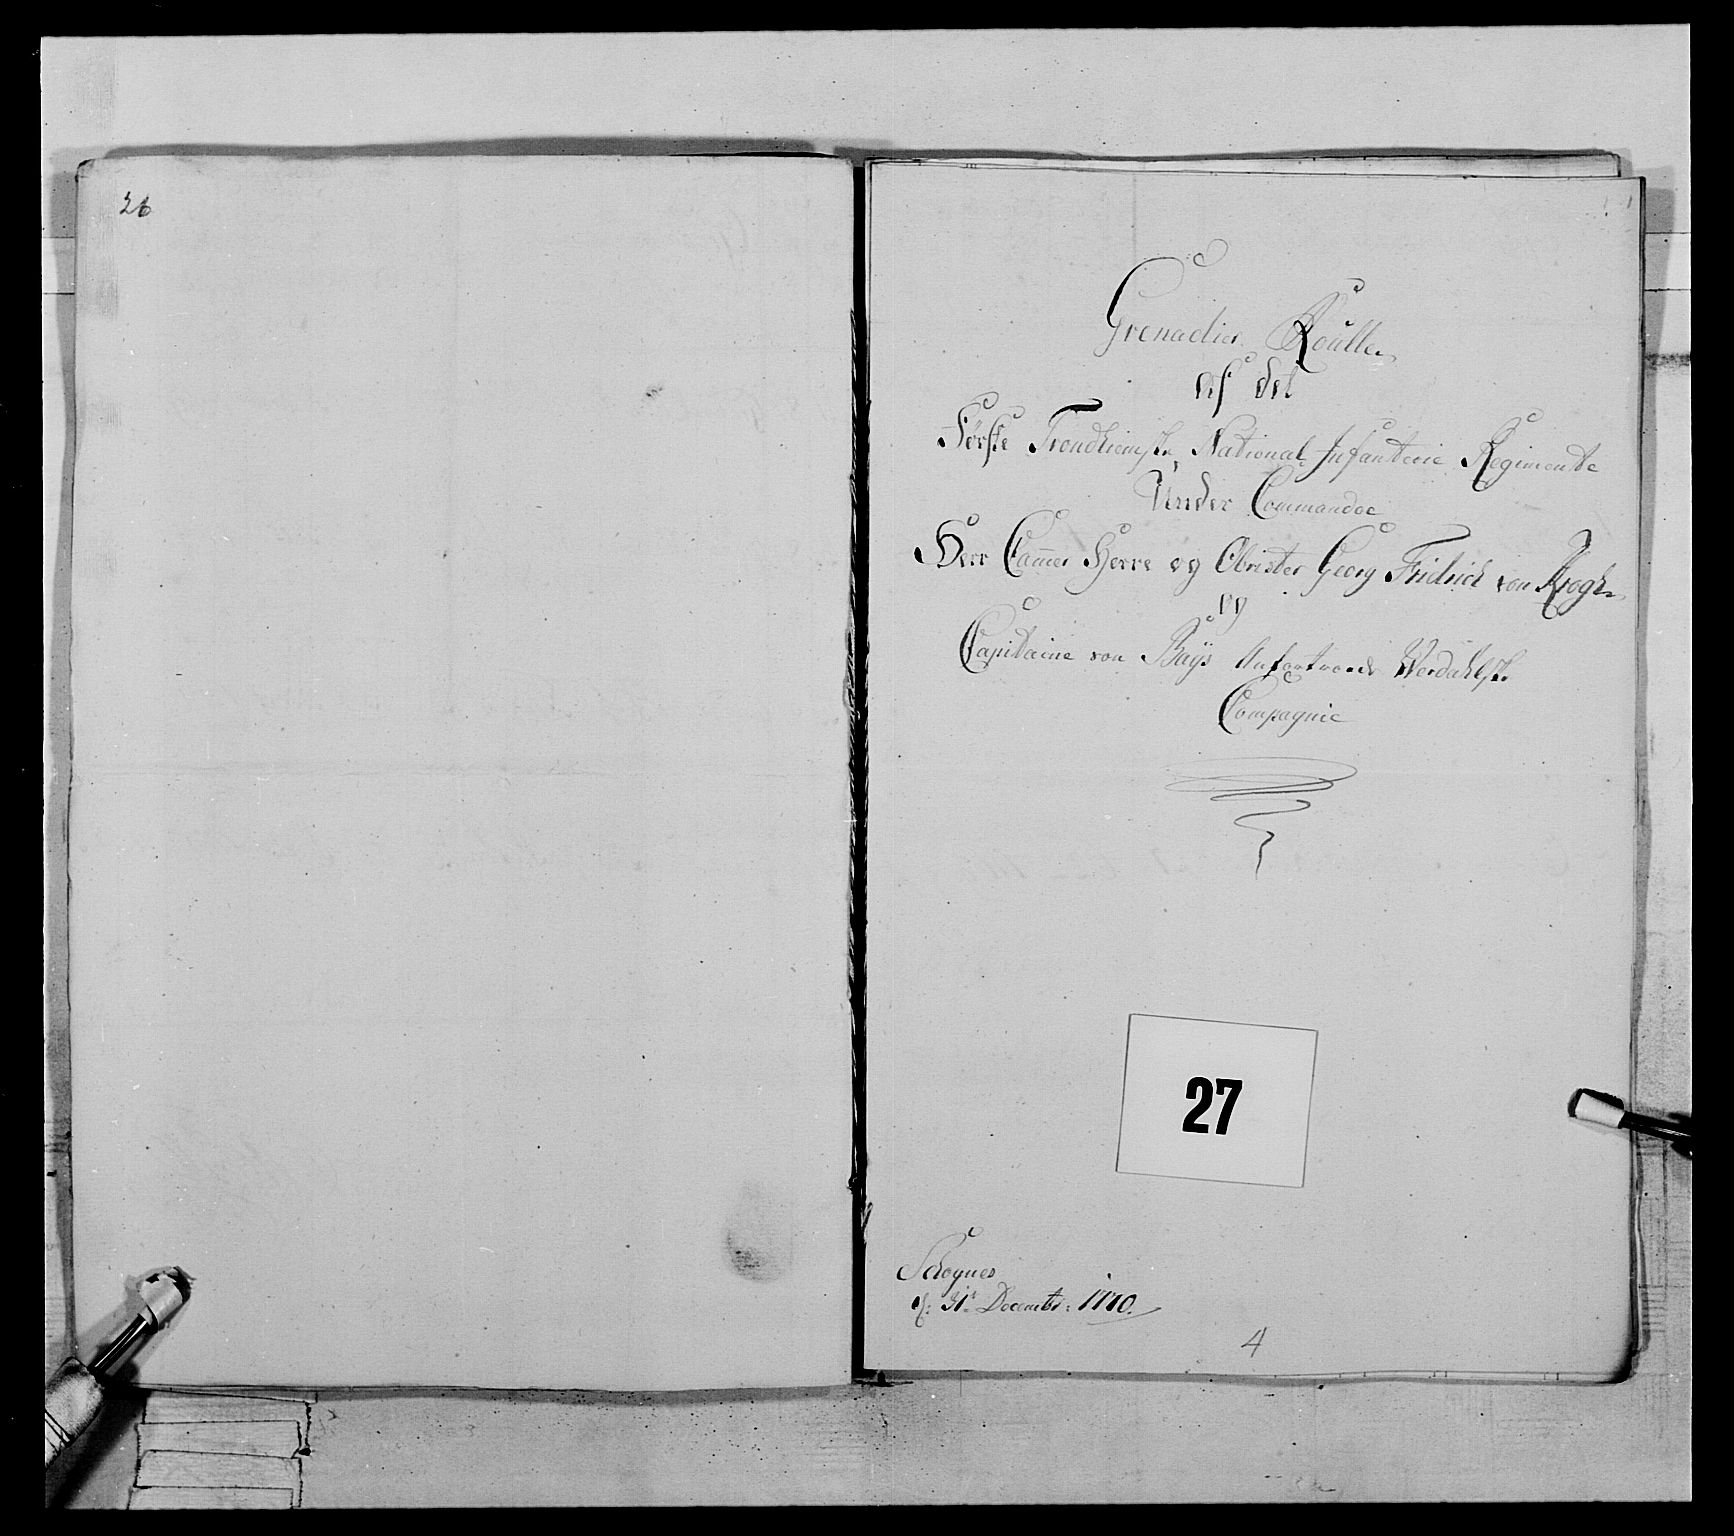 26
Grenadier Roulle
af det
Første Trondhiemske National Infanterie Regimente
Under Commandoe
Herr Cammer Herre og Obrister Georg Fridrich von Krogh
og
Capitaine von Bays Anfortroede Werdahlske
Compagnie
27
Schognes
d: 31te Decembr: 1770.
4